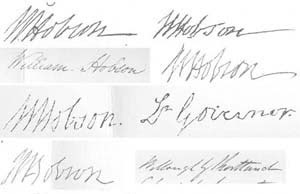 WHobson
WHobson
William Hobson
WHobson
WHobson.
Lt Governor.
WHobson
Willoughby Shortland